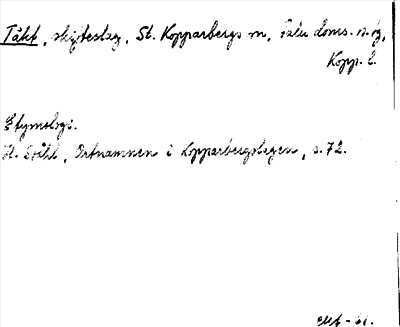 Täkt, skifteslag, St. Kopparbergs sn, Falu doms. n. tg,
Kopp. l.
Etymologi.
H. Ståhl, Ortnamnen i Kopparbergslagen, s. 72.